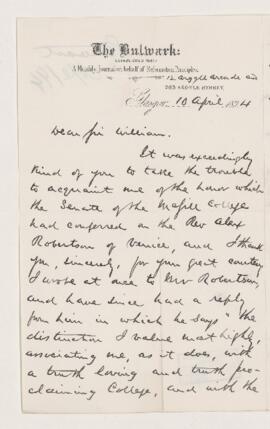 The Bulwark:
A Monthly Journal on behalf of Reformation Principles
12 Argyll Arcade and
203 ARGYLE STREET,
Glasgow 10 April 1894
Dear Sir William.
It was exceedingly
kind of you to take the trouble
to acquaint me of the honor which
the Senate of the McGill College
had conferred on the Rev Alex
Robertson of Venice, and I thank
you, sincerely, for your great courtesy
I wrote at once to Mr Robertson,
and have since had a reply
from him in which he says "the
distinction I value most highly,
associating me, as it does, with
a truth loving and truth pro-
claiming College, and with the